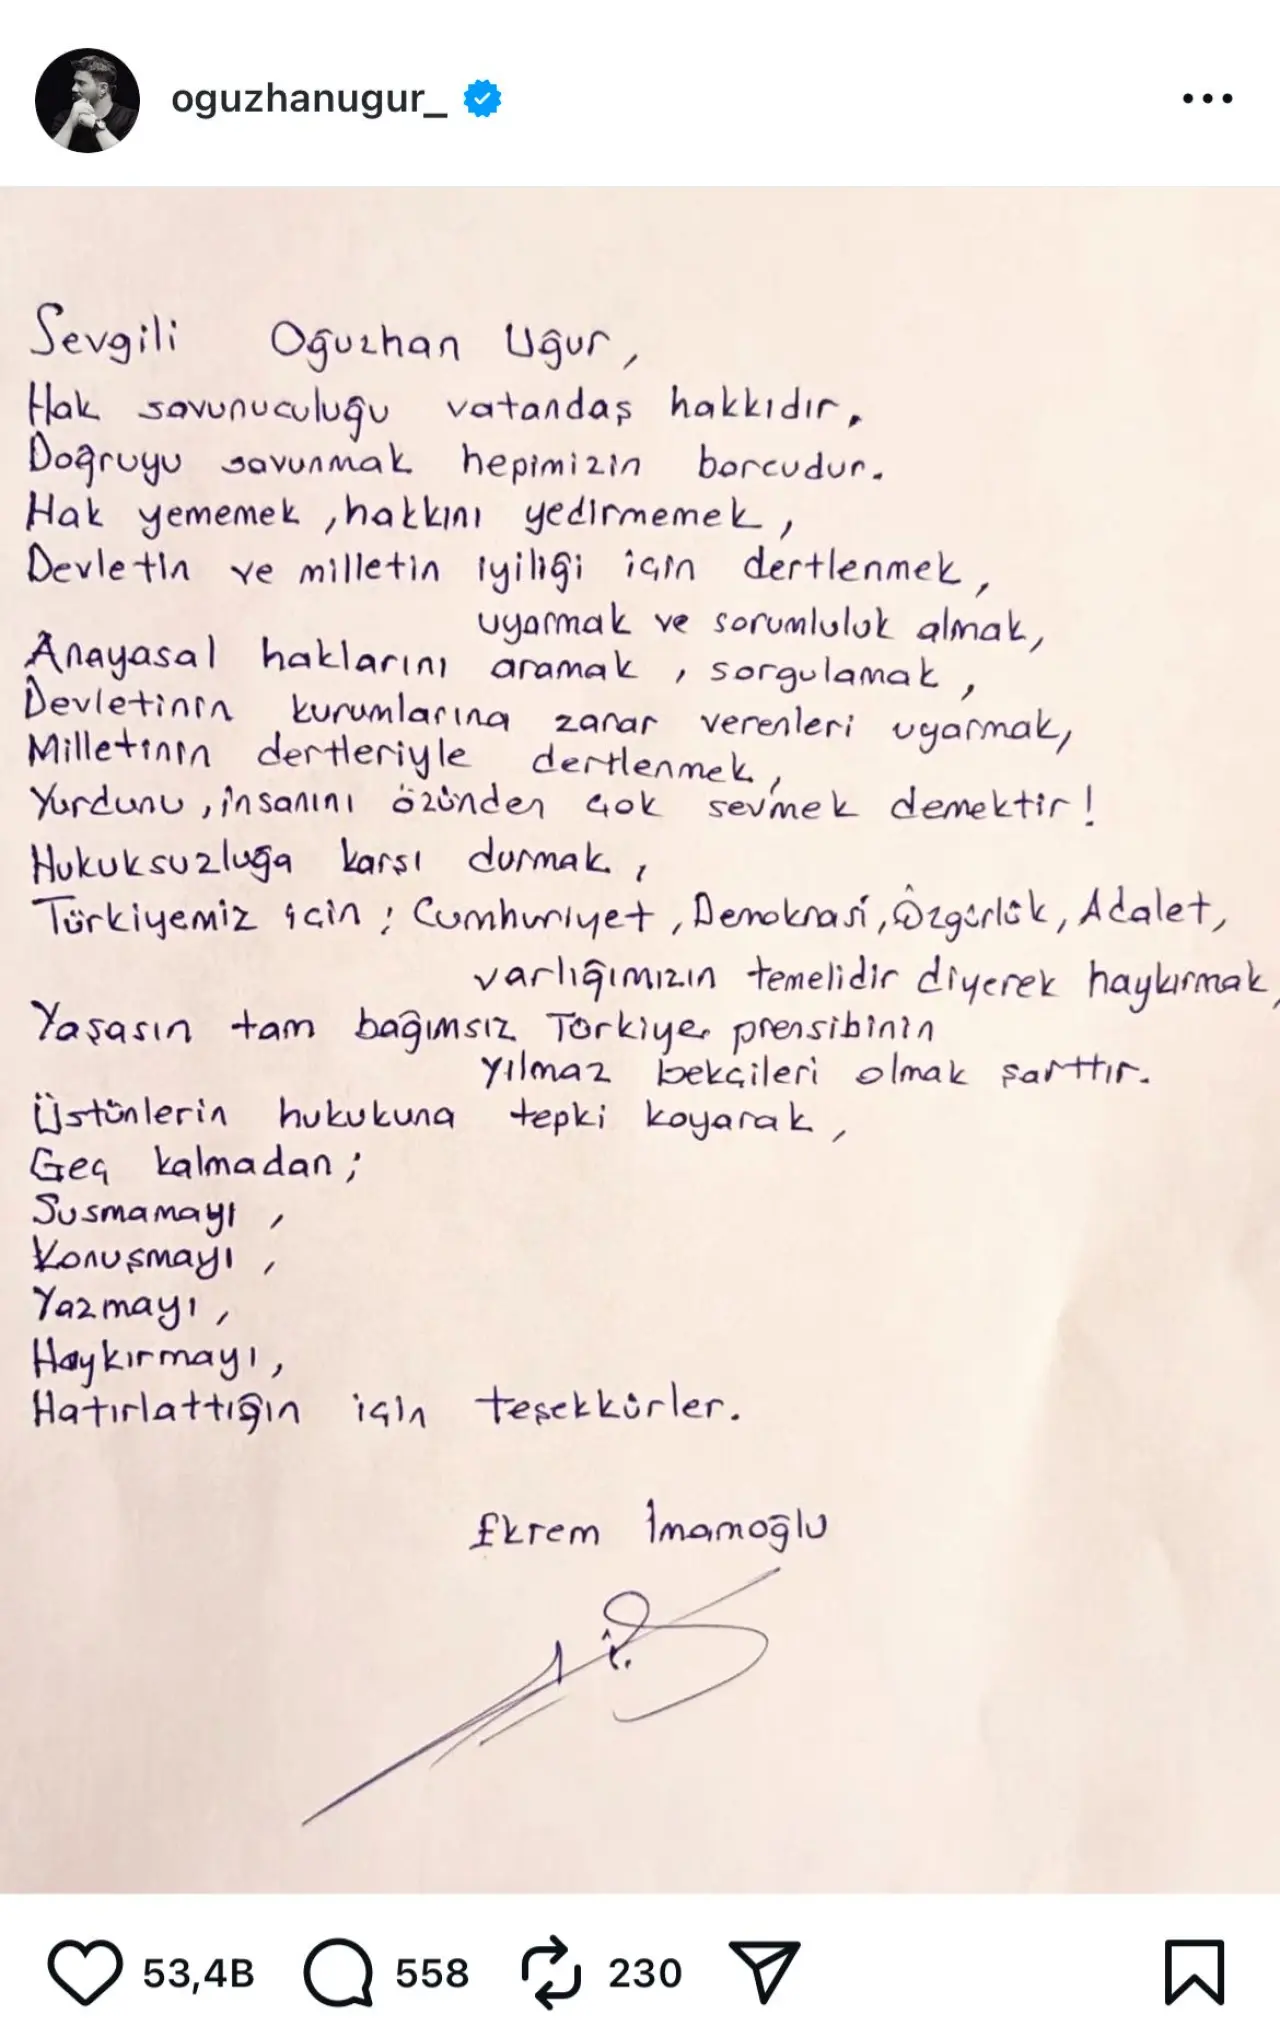 oguzhanugur_
Sevgili Oğuzhan Uğur,
Hak savunuculuğu vatandaş hakkıdır.
Doğruyu savunmak hepimizin borcudur.
Hak yememek, hakkını yedirmemek,
Devletin ve milletin iyiliği için dertlenmek,
uyarmak ve sorumluluk almak,
Anayasal haklarını aramak, sorgulamak,
Devletinin kurumlarına zarar verenleri uyarmak,
Milletinin dertleriyle dertlenmek,
Yurdunu, insanını özünden çok sevmek demektir!
Hukuksuzluğa karşı durmak,
Türkiyemiz için; Cumhuriyet, Demokrasi, Özgürlük, Adalet,
varlığımızın temelidir diyerek haykırmak,
Yaşasın tam bağımsız Türkiye prensibinin
yılmaz bekçileri olmak şarttır.
Üstünlerin hukukuna tepki koyarak,
Geç kalmadan;
Susmamayı,
Konuşmayı,
Yazmayı,
Haykırmayı,
Hatırlattığın için teşekkürler.
Ekrem İmamoğlu
53,4B 558 230